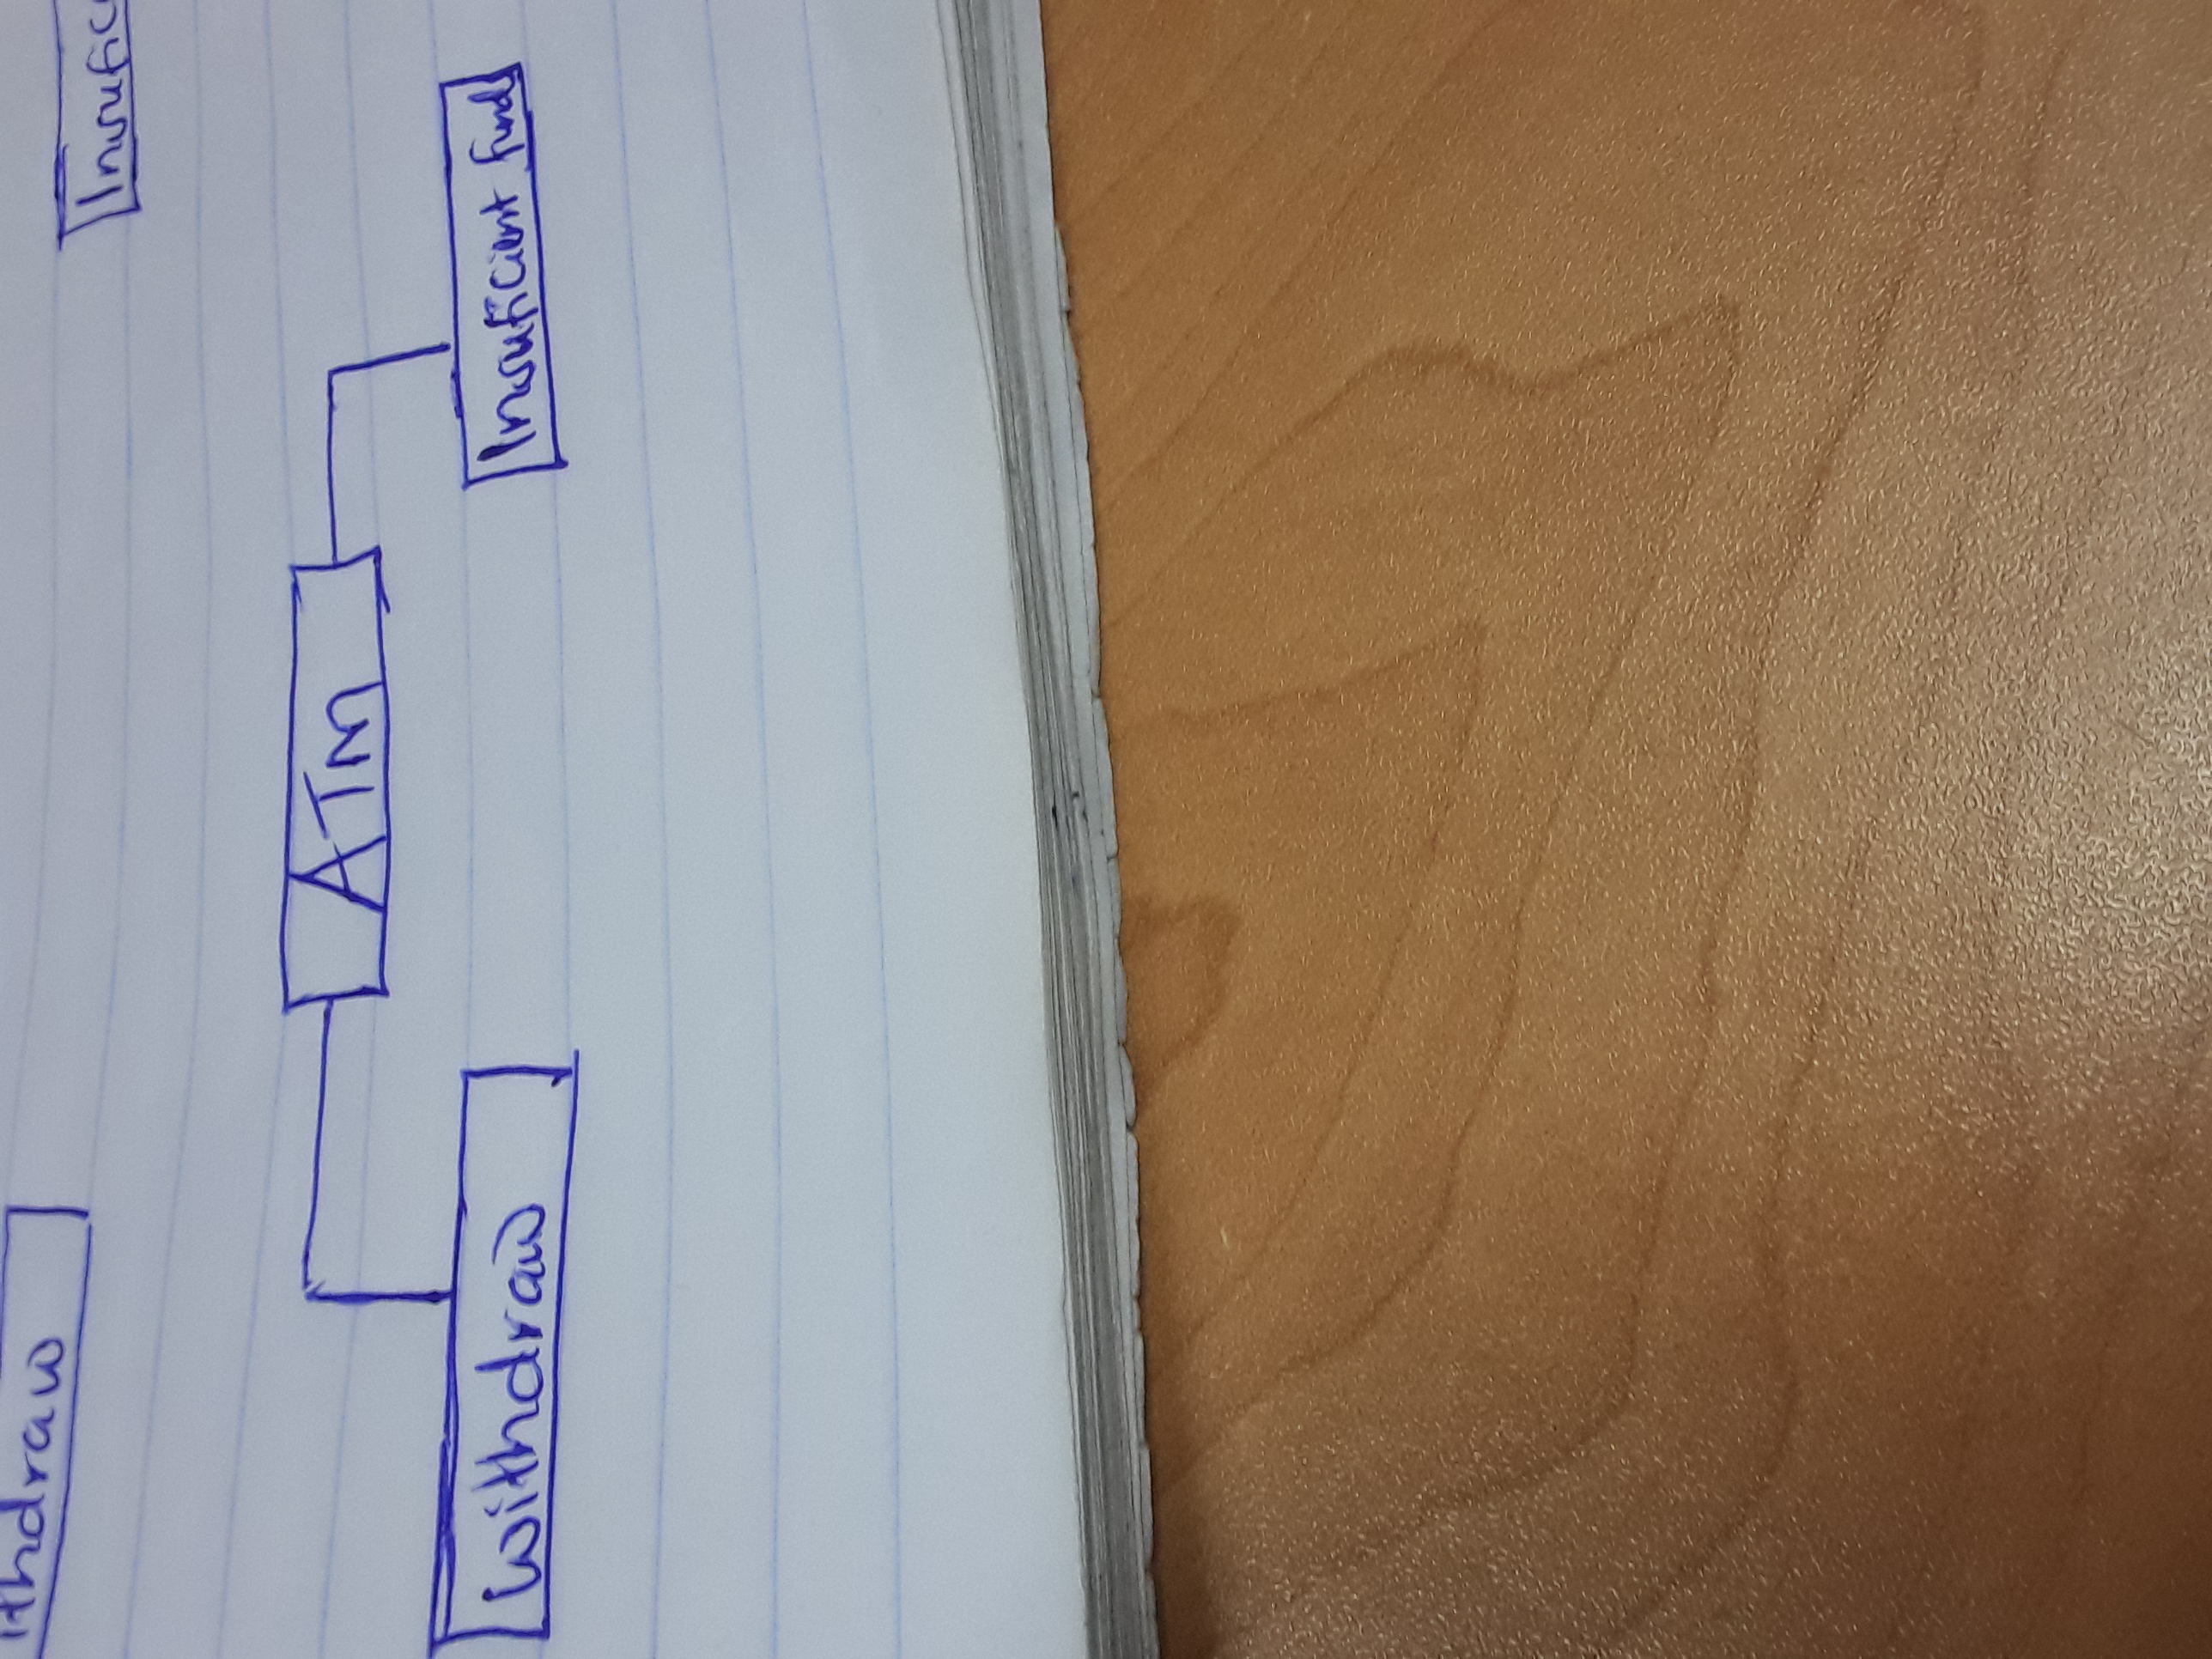 ithdraw
Insufic
ATM
Withdraw
Insuficient funds